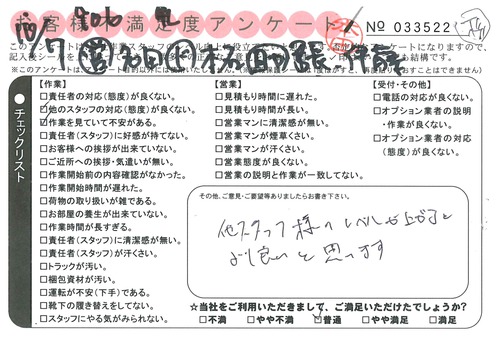 お客様不満足度アンケート
No 033522
チェックリスト
【作業】
□責任者の対応(態度)が良くない。
□他のスタッフの対応(態度)が良くない。
□作業を見ていて不安がある。
□責任者(スタッフ)に好感が持てない。
□お客様への挨拶が出来ていない。
□ご近所への挨拶・気遣いが無い。
□作業開始前の内容確認がなかった。
□作業開始時間が遅れた。
□荷物の取り扱いが雑である。
□お部屋の養生が出来ていない。
□作業時間が長すぎる。
□責任者(スタッフ)に清潔感が無い。
□責任者(スタッフ)が汗くさい。
□トラックが汚い。
□梱包資材が汚い。
□運転が不安(下手)である。
□靴下の履き替えをしてない。
□スタッフにやる気がみられない。
【営業】
□見積もり時間に遅れた。
□見積もり時間が長い。
□営業マンに清潔感が無い。
□営業マンが煙草くさい。
□営業マンが汗くさい。
□営業態度が良くない。
□営業の説明と作業が一致してない。
【受付・その他】
□電話の対応が良くない。
□オプション業者の説明
・作業が良くない。
□オプション業者の対応
(態度)が良くない。
その他、ご意見・ご要望等ありましたらお書き下さい。
他スタッフ様のレベルが上がると
より良いと思います
☆当社をご利用いただきまして、ご満足いただけたでしょうか?
□不満 □やや不満 ☑普通 □やや満足 □満足